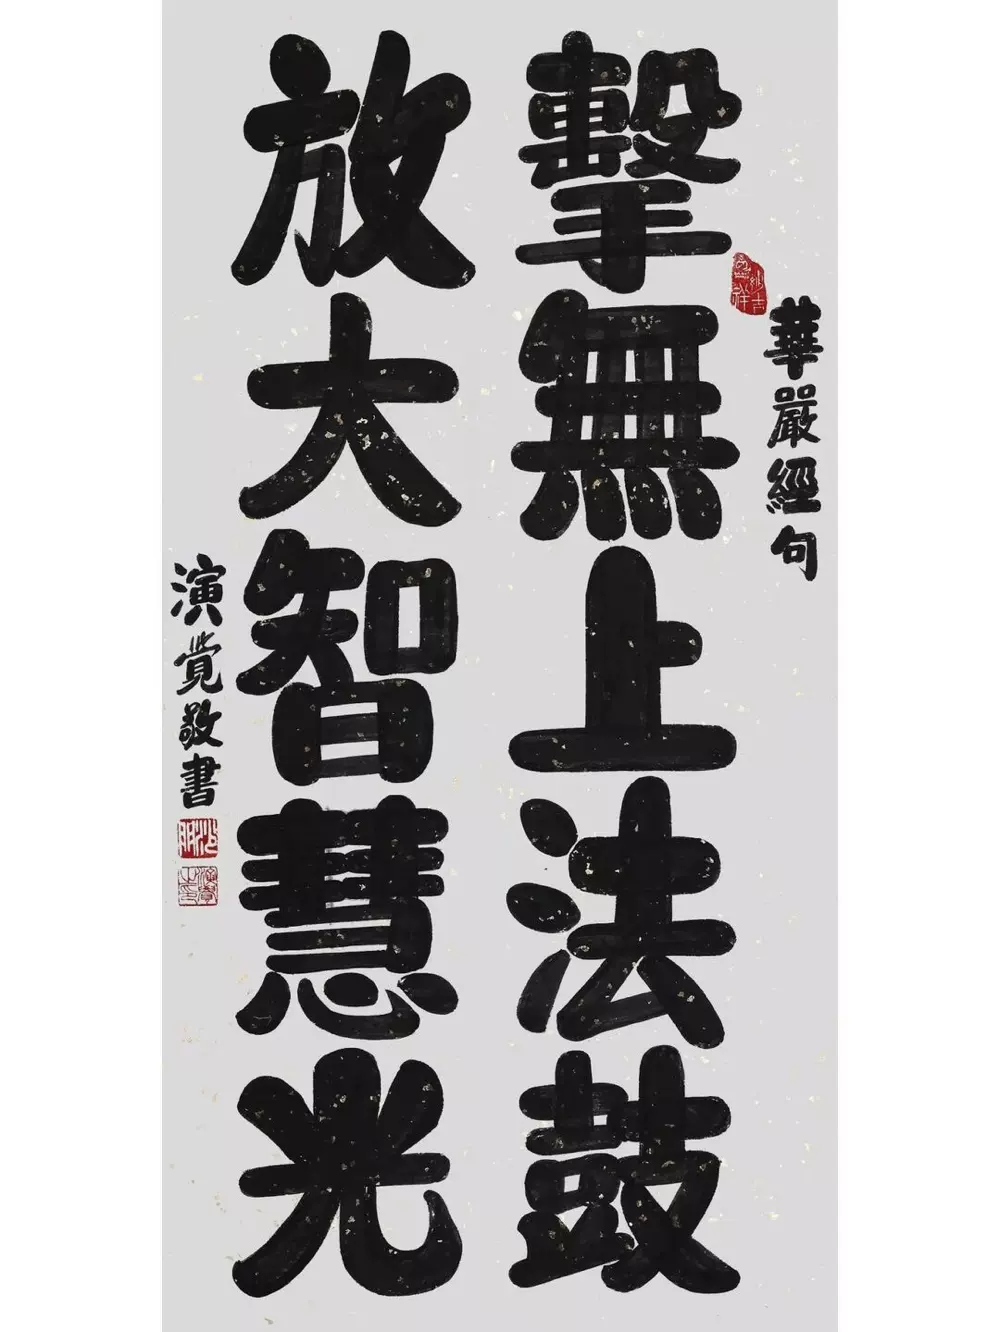 華嚴經句
擊無上法鼓
放大智慧光
演覺敬書